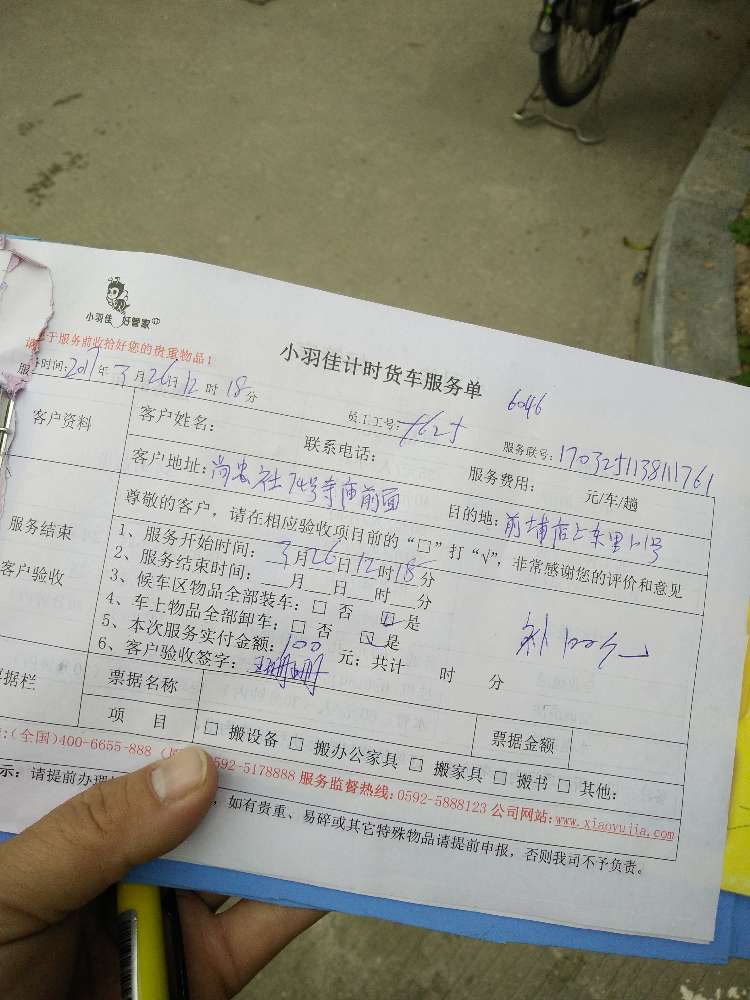 小羽佳 好管家
于服务前收拾好您的贵重物品！
小羽佳计时货车服务单
6046
时间：2017年3月26日12时18分
员工工号：
服务联号：170325113811761
客户资料
客户姓名：
联系电话：
服务费用： 元/车/趟
客户地址： 74号 前面
目的地：前埔店上东里 号
服务结束
客户验收
尊敬的客户，请在相应验收项目前的“□”打“√”，非常感谢您的评价和意见
1、服务开始时间：3月26日12时18分
2、服务结束时间：__月__日__时__分
3、候车区物品全部装车：□ 否 ☑ 是
4、车上物品全部卸车：□ 否 ☑ 是
5、本次服务实付金额：100元；共计 时 分
补100元
6、客户验收签字：
据栏
票据名称
票据金额
项 目
□ 搬设备 □ 搬办公家具 □ 搬家具 □ 搬书 □ 其他：
：(全国)400-6655-888 0592-5178888 服务监督热线：0592-5888123 公司网站：www.xiaoyujia.com
示：请提前办理 ，如有贵重、易碎或其它特殊物品请提前申报，否则我司不予负责。